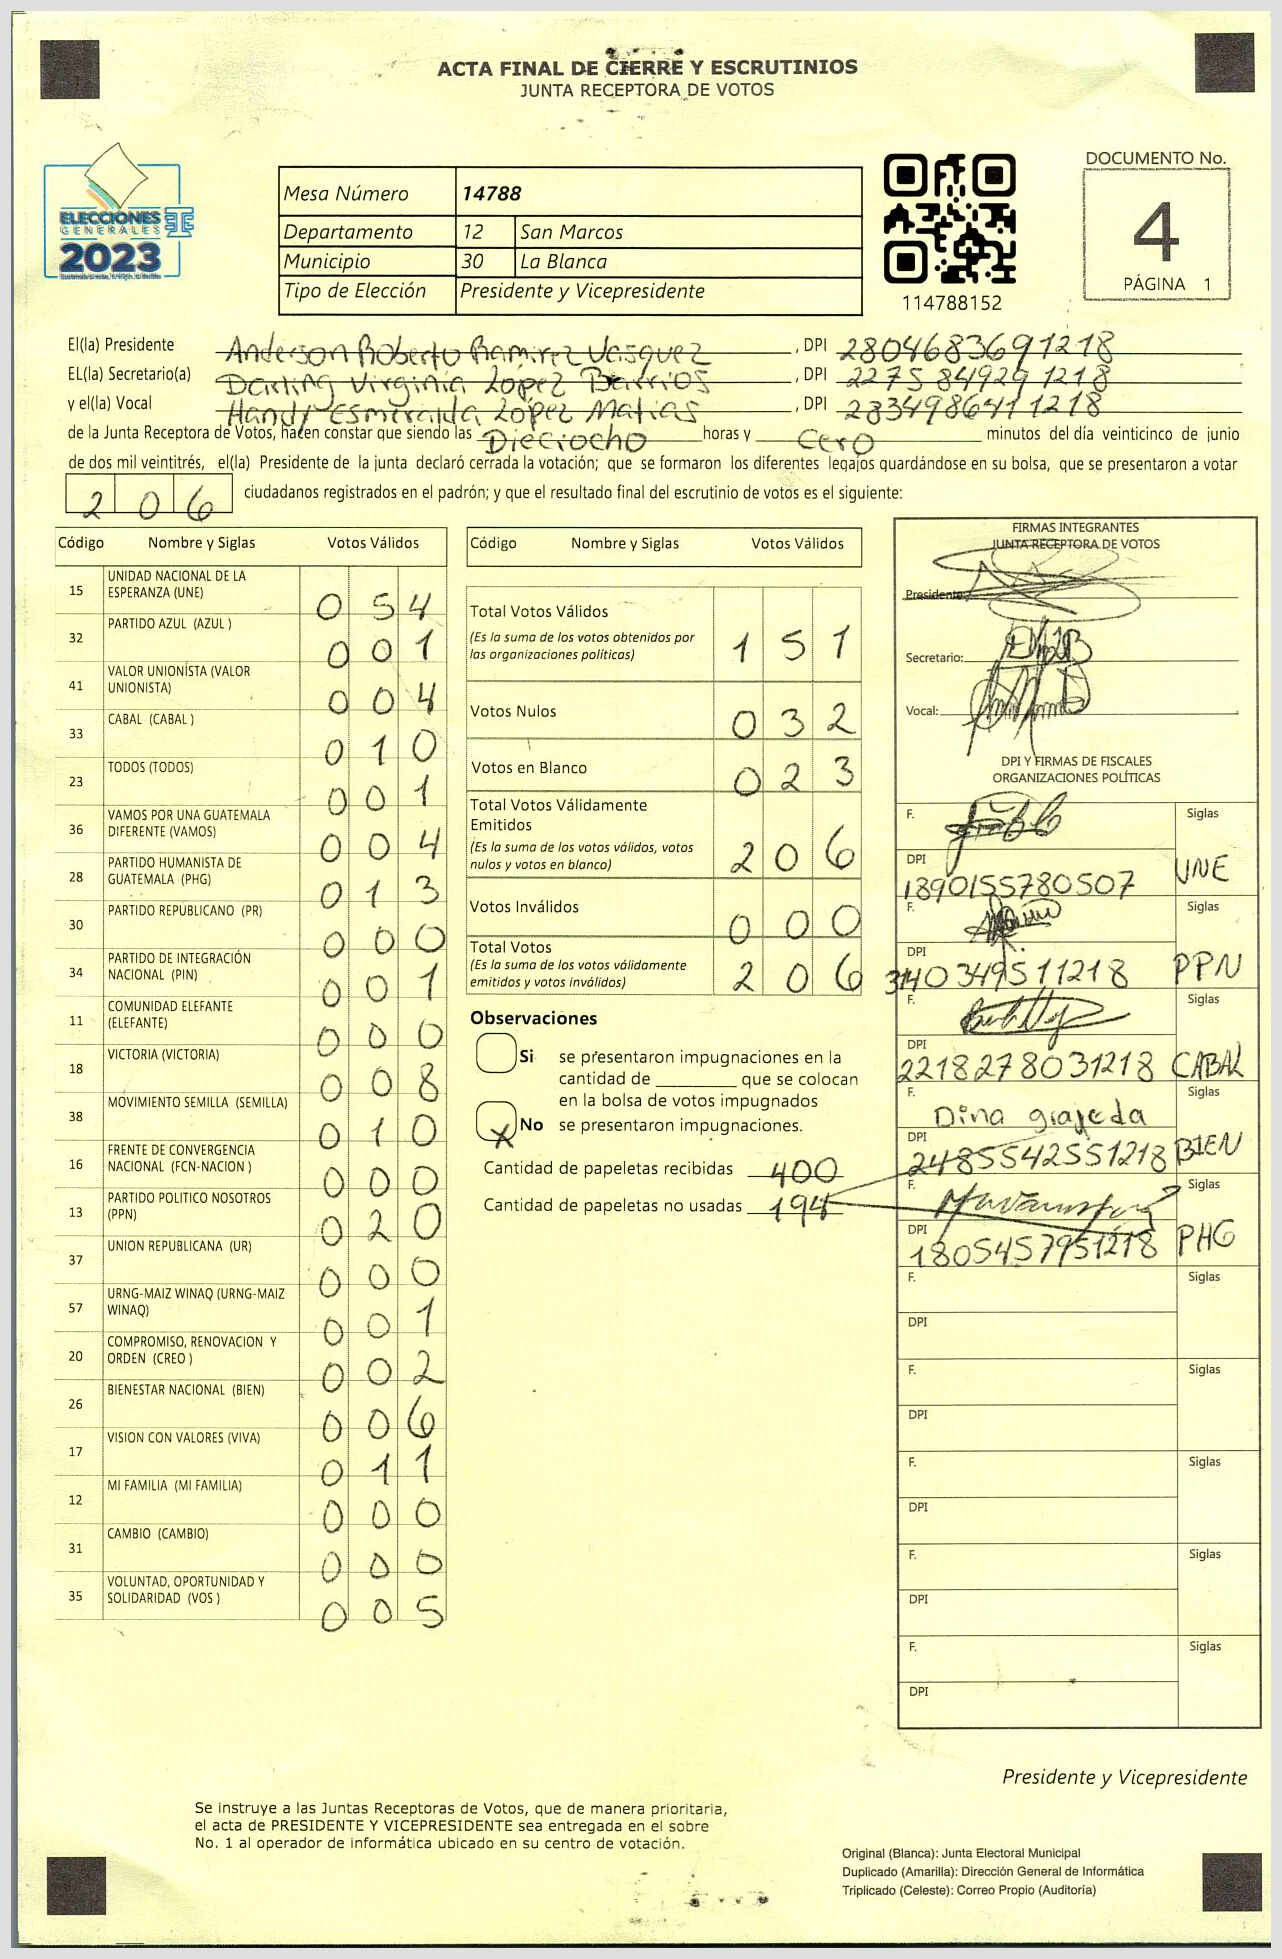 ACTA FINAL DE CIERRE Y ESCRUTINIOS
JUNTA RECEPTORA DE VOTOS
ELECCIONES
GENERALES
2023
Mesa Número 14788
Departamento 12 San Marcos
Municipio 30 La Blanca
Tipo de Elección Presidente y Vicepresidente
114788152
DOCUMENTO No.
4
PÁGINA 1
El(la) Presidente Anderson Roberto Ramirez Vasquez, DPI 2804683691218
EL(la) Secretario(a) Darling Virginia López Barrios, DPI 2275849291218
y el(la) Vocal Handy Esmeralda López Matias, DPI 2834986411218
de la Junta Receptora de Votos, hacen constar que siendo las Dieciocho horas y Cero minutos del día veinticinco de junio
de dos mil veintitrés, el(la) Presidente de la junta declaró cerrada la votación; que se formaron los diferentes legajos guardándose en su bolsa, que se presentaron a votar
206 ciudadanos registrados en el padrón; y que el resultado final del escrutinio de votos es el siguiente:
Código Nombre y Siglas Votos Válidos
15 UNIDAD NACIONAL DE LA ESPERANZA (UNE) 054
32 PARTIDO AZUL (AZUL ) 001
41 VALOR UNIONISTA (VALOR UNIONISTA) 004
33 CABAL (CABAL ) 010
23 TODOS (TODOS) 001
36 VAMOS POR UNA GUATEMALA DIFERENTE (VAMOS) 004
28 PARTIDO HUMANISTA DE GUATEMALA (PHG) 013
30 PARTIDO REPUBLICANO (PR) 000
34 PARTIDO DE INTEGRACIÓN NACIONAL (PIN) 001
11 COMUNIDAD ELEFANTE (ELEFANTE) 000
18 VICTORIA (VICTORIA) 008
38 MOVIMIENTO SEMILLA (SEMILLA) 010
16 FRENTE DE CONVERGENCIA NACIONAL (FCN-NACION ) 000
13 PARTIDO POLITICO NOSOTROS (PPN) 020
37 UNION REPUBLICANA (UR) 000
57 URNG-MAIZ WINAQ (URNG-MAIZ WINAQ) 001
20 COMPROMISO, RENOVACION Y ORDEN (CREO ) 002
26 BIENESTAR NACIONAL (BIEN) 006
17 VISION CON VALORES (VIVA) 011
12 MI FAMILIA (MI FAMILIA) 000
31 CAMBIO (CAMBIO) 000
35 VOLUNTAD, OPORTUNIDAD Y SOLIDARIDAD (VOS ) 005
Código Nombre y Siglas Votos Válidos
Total Votos Válidos 151
(Es la suma de los votos obtenidos por
las organizaciones políticas)
Votos Nulos 032
Votos en Blanco 023
Total Votos Válidamente
Emitidos 206
(Es la suma de los votos válidos, votos
nulos y votos en blanco)
Votos Inválidos 000
Total Votos 206
(Es la suma de los votos válidamente
emitidos y votos inválidos)
Observaciones
Si se presentaron impugnaciones en la
cantidad de ________ que se colocan
en la bolsa de votos impugnados
X No se presentaron impugnaciones.
Cantidad de papeletas recibidas 400
Cantidad de papeletas no usadas 194
FIRMAS INTEGRANTES
JUNTA RECEPTORA DE VOTOS
Presidente:
Secretario:
Vocal:
DPI Y FIRMAS DE FISCALES
ORGANIZACIONES POLÍTICAS
F. Siglas
DPI 1890155780507 UNE
F. Siglas
DPI 3140349511218 PPN
F. Siglas
DPI 2218278031218 CABAL
F. Dina grajeda Siglas
DPI 2485542551218 BIEN
F. Siglas
DPI 1805457951218 PHG
F. Siglas
DPI
F. Siglas
DPI
F. Siglas
DPI
F. Siglas
DPI
F. Siglas
DPI
Presidente y Vicepresidente
Se instruye a las Juntas Receptoras de Votos, que de manera prioritaria,
el acta de PRESIDENTE Y VICEPRESIDENTE sea entregada en el sobre
No. 1 al operador de informática ubicado en su centro de votación.
Original (Blanca): Junta Electoral Municipal
Duplicado (Amarilla): Dirección General de Informática
Triplicado (Celeste): Correo Propio (Auditoría)